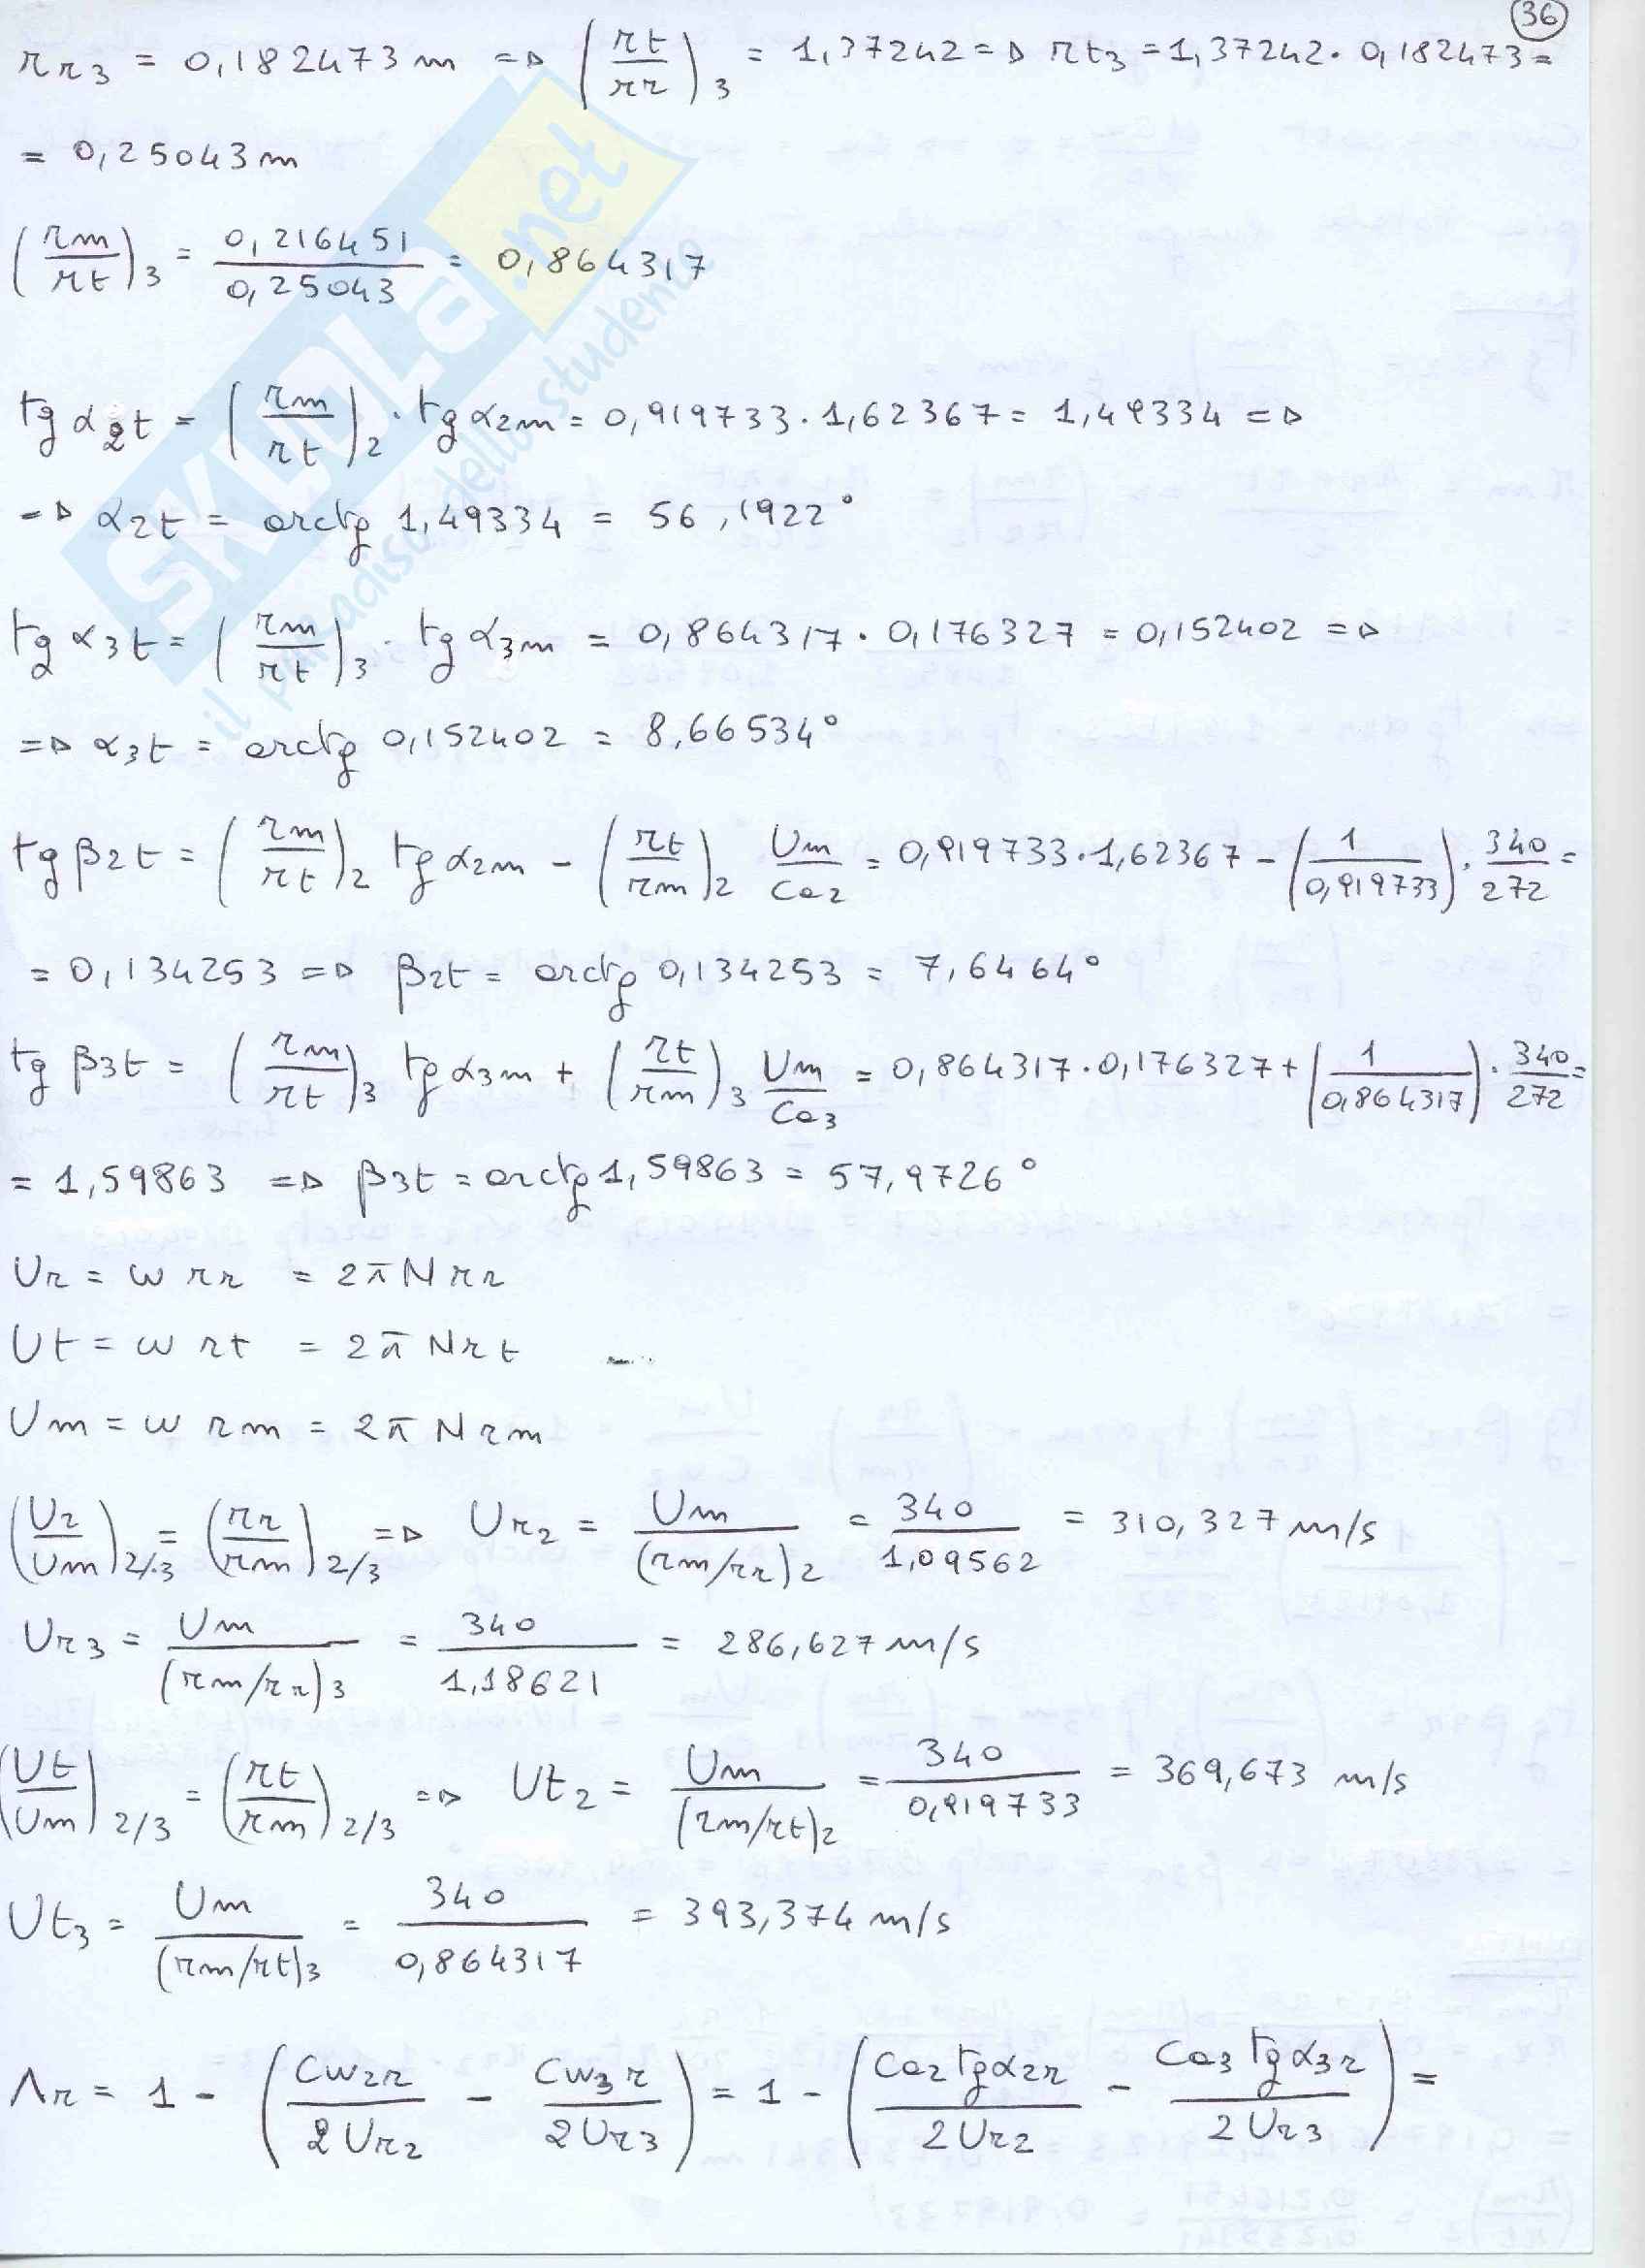 36
rr3 = 0,182473 m => (rt/rr)3 = 1,37242 => rt3 = 1,37242 · 0,182473 =
= 0,25043 m
(rm/rt)3 = 0,216451/0,25043 = 0,864317
tg α2t = (rm/rt)2 · tg α2m = 0,919733 · 1,62367 = 1,49334 =>
=> α2t = arctg 1,49334 = 56,1922°
tg α3t = (rm/rt)3 · tg α3m = 0,864317 · 0,176327 = 0,152402 =>
=> α3t = arctg 0,152402 = 8,66534°
tg β2t = (rm/rt)2 tg α2m - (rt/rm)2 Um/Ca2 = 0,919733 · 1,62367 - (1/0,919733) · 340/272 =
= 0,134253 => β2t = arctg 0,134253 = 7,6464°
tg β3t = (rm/rt)3 tg α3m + (rt/rm)3 Um/Ca3 = 0,864317 · 0,176327 + (1/0,864317) · 340/272 =
= 1,59863 => β3t = arctg 1,59863 = 57,9726°
Ur = ω rr = 2π N rr
Ut = ω rt = 2π N rt
Um = ω rm = 2π N rm
(Ur/Um)2/3 = (rr/rm)2/3 => Ur2 = Um/(rm/rr)2 = 340/1,09562 = 310,327 m/s
Ur3 = Um/(rm/rr)3 = 340/1,18621 = 286,627 m/s
(Ut/Um)2/3 = (rt/rm)2/3 => Ut2 = Um/(rm/rt)2 = 340/0,919733 = 369,673 m/s
Ut3 = Um/(rm/rt)3 = 340/0,864317 = 393,374 m/s
Λr = 1 - (Cw2r/2Ur2 - Cw3r/2Ur3) = 1 - (Ca2 tg α2r/2Ur2 - Ca3 tg α3r/2Ur3) =
SKUOLA.net
il paradiso dello studente